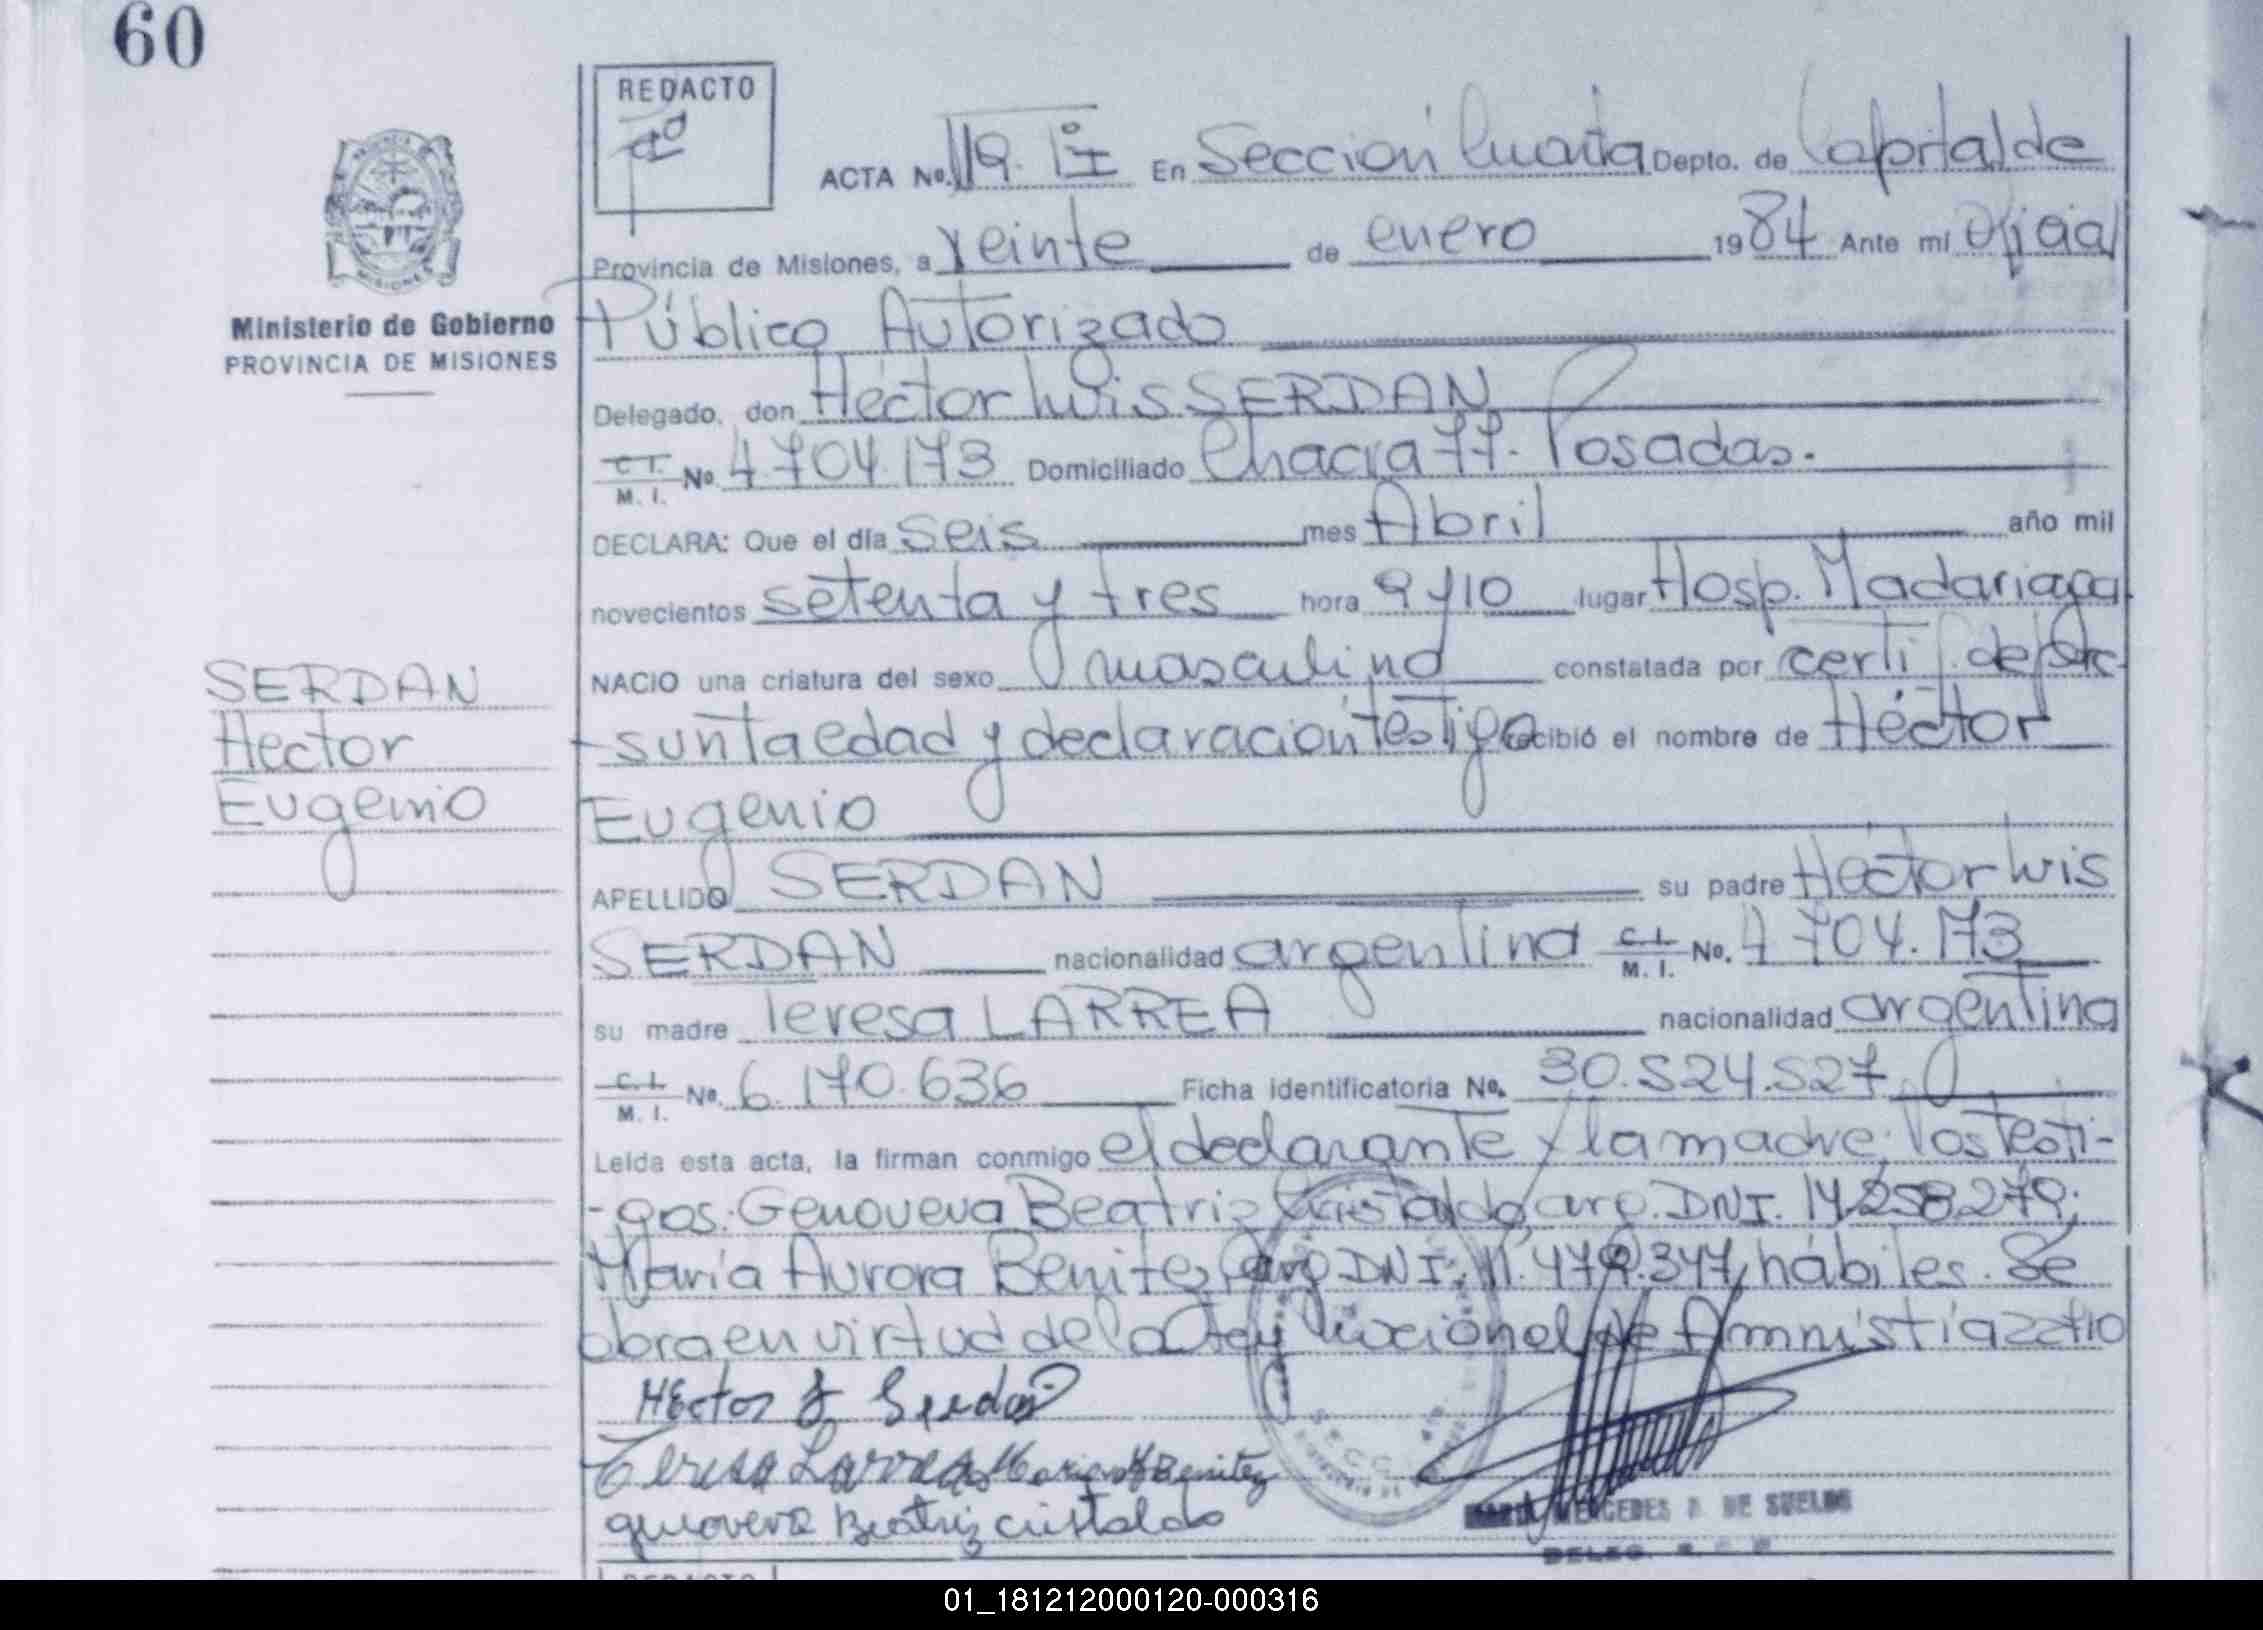 60
REDACTO
ACTA No. 119. TI En Sección Cuarta Depto. de Capital de
Provincia de Misiones, a veinte de enero 1984 Ante mí Oficial
Público Autorizado
Ministerio de Gobierno
PROVINCIA DE MISIONES
Delegado, don Héctor Luis SERDAN
C.I. M. I. No. 4.704.173 Domiciliado Chacra 77. Posadas.
DECLARA: Que el día seis mes Abril año mil
novecientos setenta y tres hora 9 y 10 lugar Hosp. Madariaga
NACIO una criatura del sexo masculino constatada por certif. de pre
-sunta edad y declaración testigo recibió el nombre de Héctor
Eugenio
SERDAN
Hector
Eugenio
APELLIDO SERDAN su padre Hector Luis
SERDAN nacionalidad argentina C.I. M. I. No. 4.704.173
su madre Teresa LARREA nacionalidad argentina
C.I. M. I. No. 6.170.636 Ficha identificatoria No. 30.524.527
Leída esta acta, la firman conmigo el declarante y la madre, los testi-
-gos: Genoveva Beatriz Cristaldo, arg. DNI. 14.258.279;
María Aurora Benitez, arg DNI. 11.479.347, hábiles. Se
obra en virtud de la Ley Nacional de Amnistía 22410
Héctor L Serdán
Teresa Larrea Maria A Benitez
genoveva Beatriz cristaldo
MERCEDES DE SUELDO
DELEG.
REDACTO
01_181212000120-000316